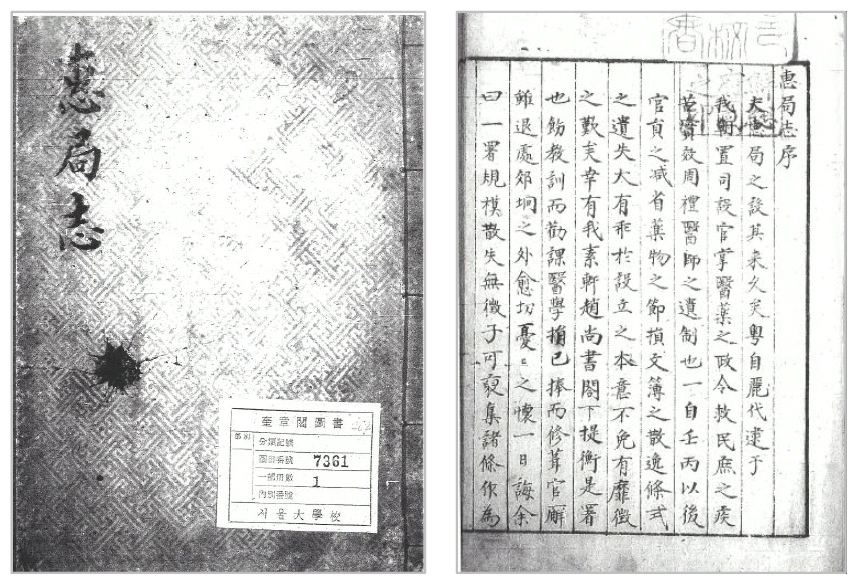 惠局志
奎章閣圖書
部別
分類記號
圖書番號 7361
一部冊數 1
內別番號
서울大學校
惠局志序
夫惠局之設其来久矣粤自麗代逮于
我朝置司設官掌醫藥之政令救民庶之疾
蓋寔效周禮醫師之遺制也一自壬丙以後
官負之减省藥物之節損文簿之散逸條式
之遺失大有乖扵設立之本意不免有靡徴
之歎矣幸有我素軒趙尚書閤下提衡是署
也飭教訓而勸課醫學捐己捧而修葺官廨
雖退處郊坰之外愈切憂〻之懷一日誨余
曰一署規模散失無徴子可裒集諸條作為